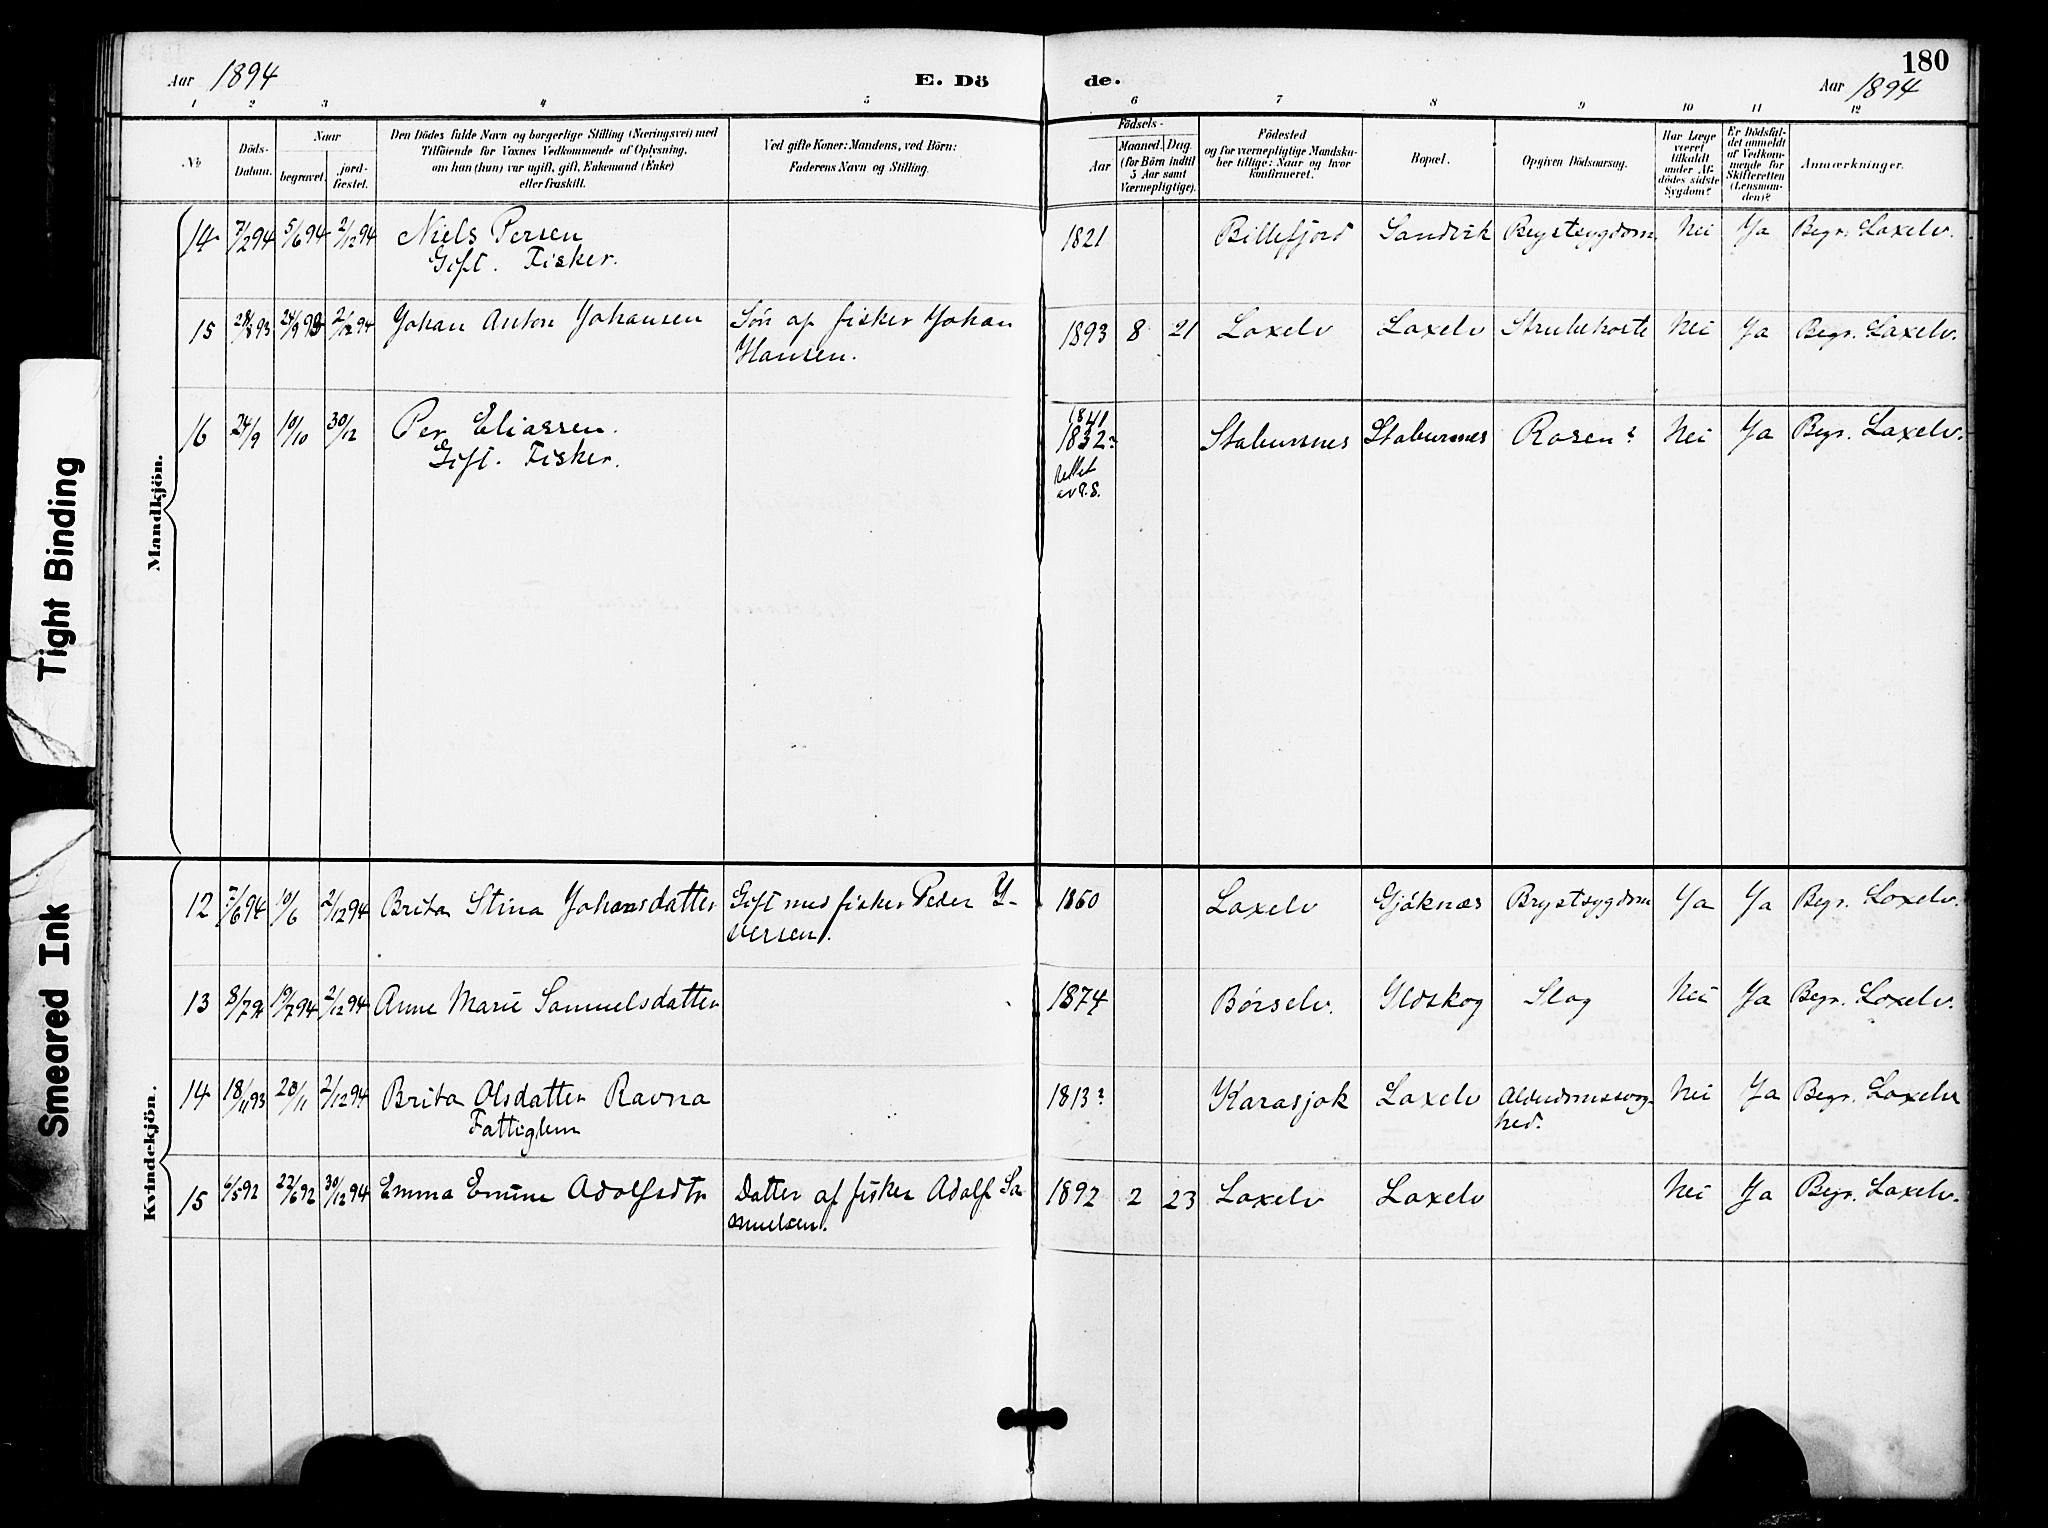 180
Aar 1894 E. Dö de. Aar 1894
1 2 3 4 5 6 7 8 9 10 11 12
No
Döds-Datum.
Naar
begravet.
jord-fæstet.
Den Dödes fulde Navn og borgerlige Stilling (Næringsvei) med
Tilföiende for Voxnes Vedkommende af Oplysning,
om han (hun) var ugift, gift, Enkemand (Enke)
eller fraskilt.
Ved gifte Koner: Mandens, ved Börn:
Faderens Navn og Stilling.
Födsels-
Aar
Maaned. Dag.
(for Börn indtil
5 Aar samt
Værnepligtige).
Födested
og for værnepligtige Mandska-
ber tillige: Naar og hvor
konfirmeret.
Bopæl.
Opgiven Dödsaarsag.
Har Læge
været
tilkaldt
under Af-
dödes sidste
Sygdom?
Er Dödsfal-
det anmeldt
af Vedkom-
mende for
Skifteretten
(Lensman-
den)?
Anmærkninger.
Mandkjön.
14 7/2 94 5/6 94 2/12 94 Niels Persen 1821 Billefjord Sandvik Brystsygdom Nei Ja Begr. Laxelv.
Gift. Fisker.
15 24/9 93 2/12 94 Johan Anton Johansen Sön af fisker Johan 1893 8 21 Laxelv Laxelv Strubehoste Nei Ja Begr. Laxelv.
Hansen.
16 24/9 10/10 30/12 Per Eliassen. 1841 Stabursnes Stabursnes Rosen? Nei Ja Begr. Laxelv.
1832?
Gift. Fisker.
Rettet
av P.S.
Kvindekjön.
12 7/6 94 10/6 2/12 94 Brita Stina Johansdatter Gift med fisker Peder I- 1860 Laxelv Gjöknæs Brystsygdom Ja Ja Begr. Laxelv.
versen.
13 8/7 94 10/7 94 2/12 94 Anne Marie Samuelsdatter 1874 Börselv. Ildskog Slag Nei Ja Begr. Laxelv.
14 18/11 93 20/11 2/12 94 Brita Olsdatter Ravna 1813? Karasjok Laxelv Alderdomssvag- Nei Ja Begr. Laxelv
Fattiglem hed.
15 6/5 92 22/6 92 30/12 94 Emma Emine Adolfsdtr Datter af fisker Adolf Sa 1892 2 23 Laxelv Laxelv Nei Ja Begr. Laxelv.
muelsen.
Tight Binding
Smeared Ink